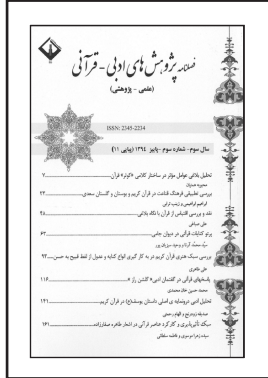 فصلنامه پژوهش های ادبی - قرآنی
(علمی - پژوهشی)
ISSN: 2345-2234
سال سوم - شماره سوم - پاییز ۱۳۹٤ (پیاپی ۱۱)
تحلیل بلاغی عوامل مؤثر در ساختار کلامی «کوثر» قرآن ۷
بررسی تطبیقی فرهنگ قناعت در قرآن کریم و بوستان و گلستان سعدی ۲۳
ابراهیم ابراهیمی و زینب ترابی
نقد و بررسی اقتباس از قرآن با نگاه بلاغی ٤۵
علی صباغی
پرتو کنایات قرآنی در دیوان جامی ٦۳
بررسی سبک هنری قرآن کریم در به کار گیری انواع کنایه و عدول از لفظ قبیح به حسن ۹۳
علی طاهری
پاسخهای قرآنی در گفتمان ادبی «گلشن راز» ۱۱٦
محمد حسین خان محمدی
تحلیل ادبی درونمایه ی اصلی داستان یوسف(ع) در قرآن کریم ۱۴۱
سبک تأثیرپذیری و کارکرد عناصر قرآنی در اشعار طاهره صفارزاده ۱٦۱
سیده زهرا موسوی و فاطمه سلطانی